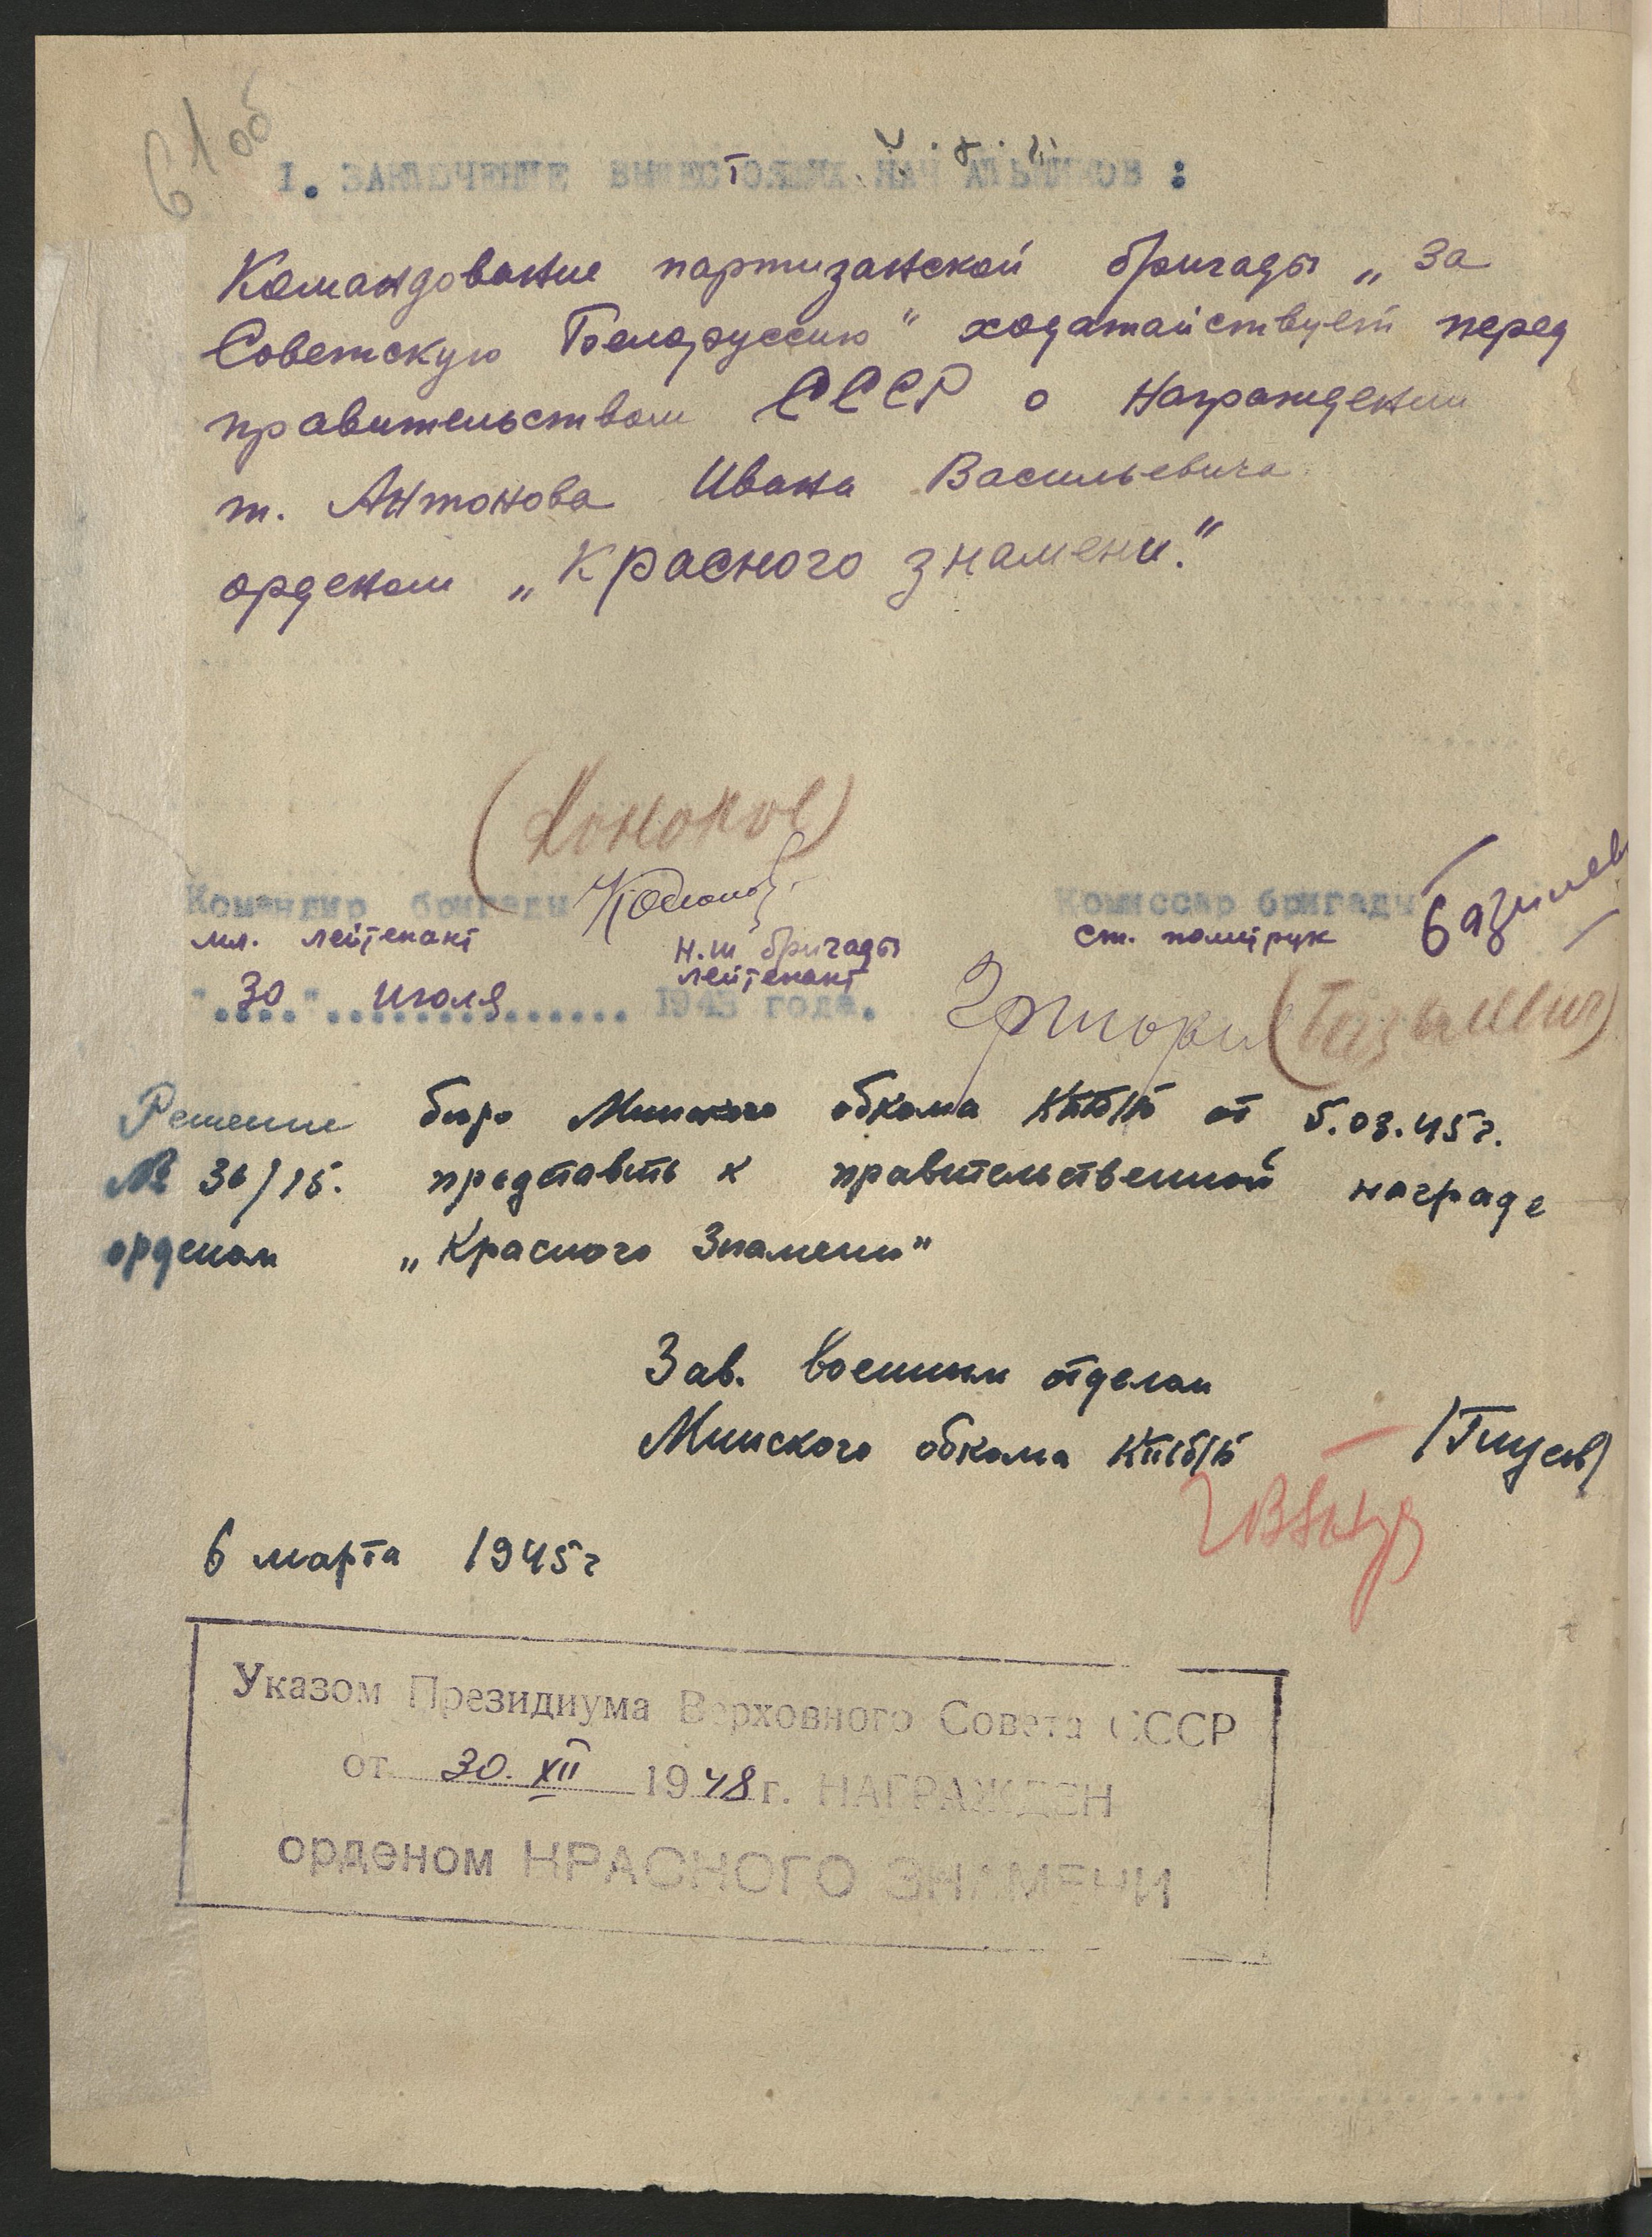 61 об
I. ЗАКЛЮЧЕНИЕ ВЫШЕСТОЯЩИХ НАЧАЛЬНИКОВ :
Командование партизанской бригады „За
Советскую Белоруссию" ходатайствует перед
правительством СССР о награждении
т. Антонова Ивана Васильевича
орденом „Красного знамени."
Командир бригады
Комиссар бригады
мл. лейтенант
ст. политрук
н.ш бригады
лейтенант
"30" июля 1943 года.
Решение бюро Минского обкома КП(б)Б от 5.03.45г.
№ 36/15. представить к правительственной награде
орденом „Красного Знамени"
Зав. военным отделом
Минского обкома КП(б)Б
6 марта 1945г
Указом Президиума Верховного Совета СССР
от 30. XII 1948 г. НАГРАЖДЕН
орденом КРАСНОГО ЗНАМЕНИ